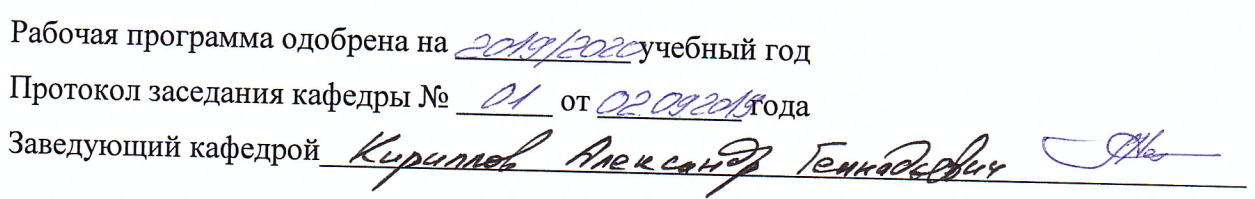 Рабочая программа одобрена на 2019/2020 учебный год
Протокол заседания кафедры № 01 от 02.092019 года
Заведующий кафедрой Кириллов Александр Геннадьевич